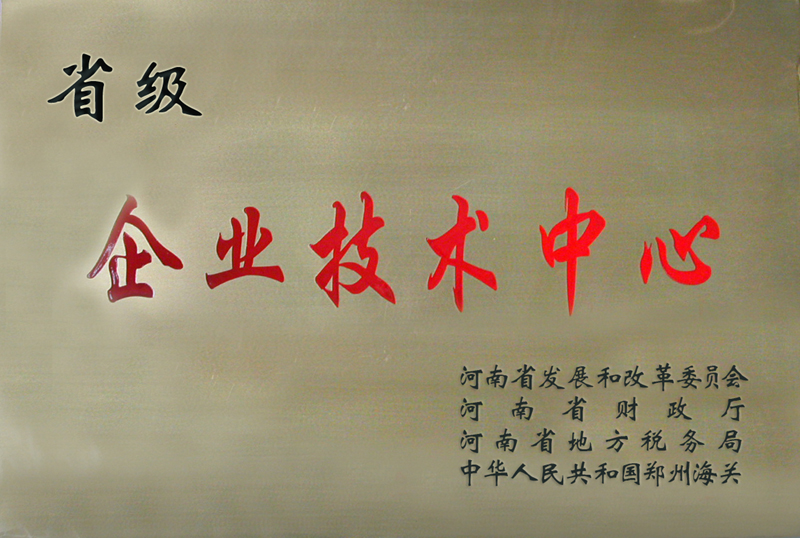 省级
企业技术中心
河南省发展和改革委员会
河南省财政厅
河南省地方税务局
中华人民共和国郑州海关